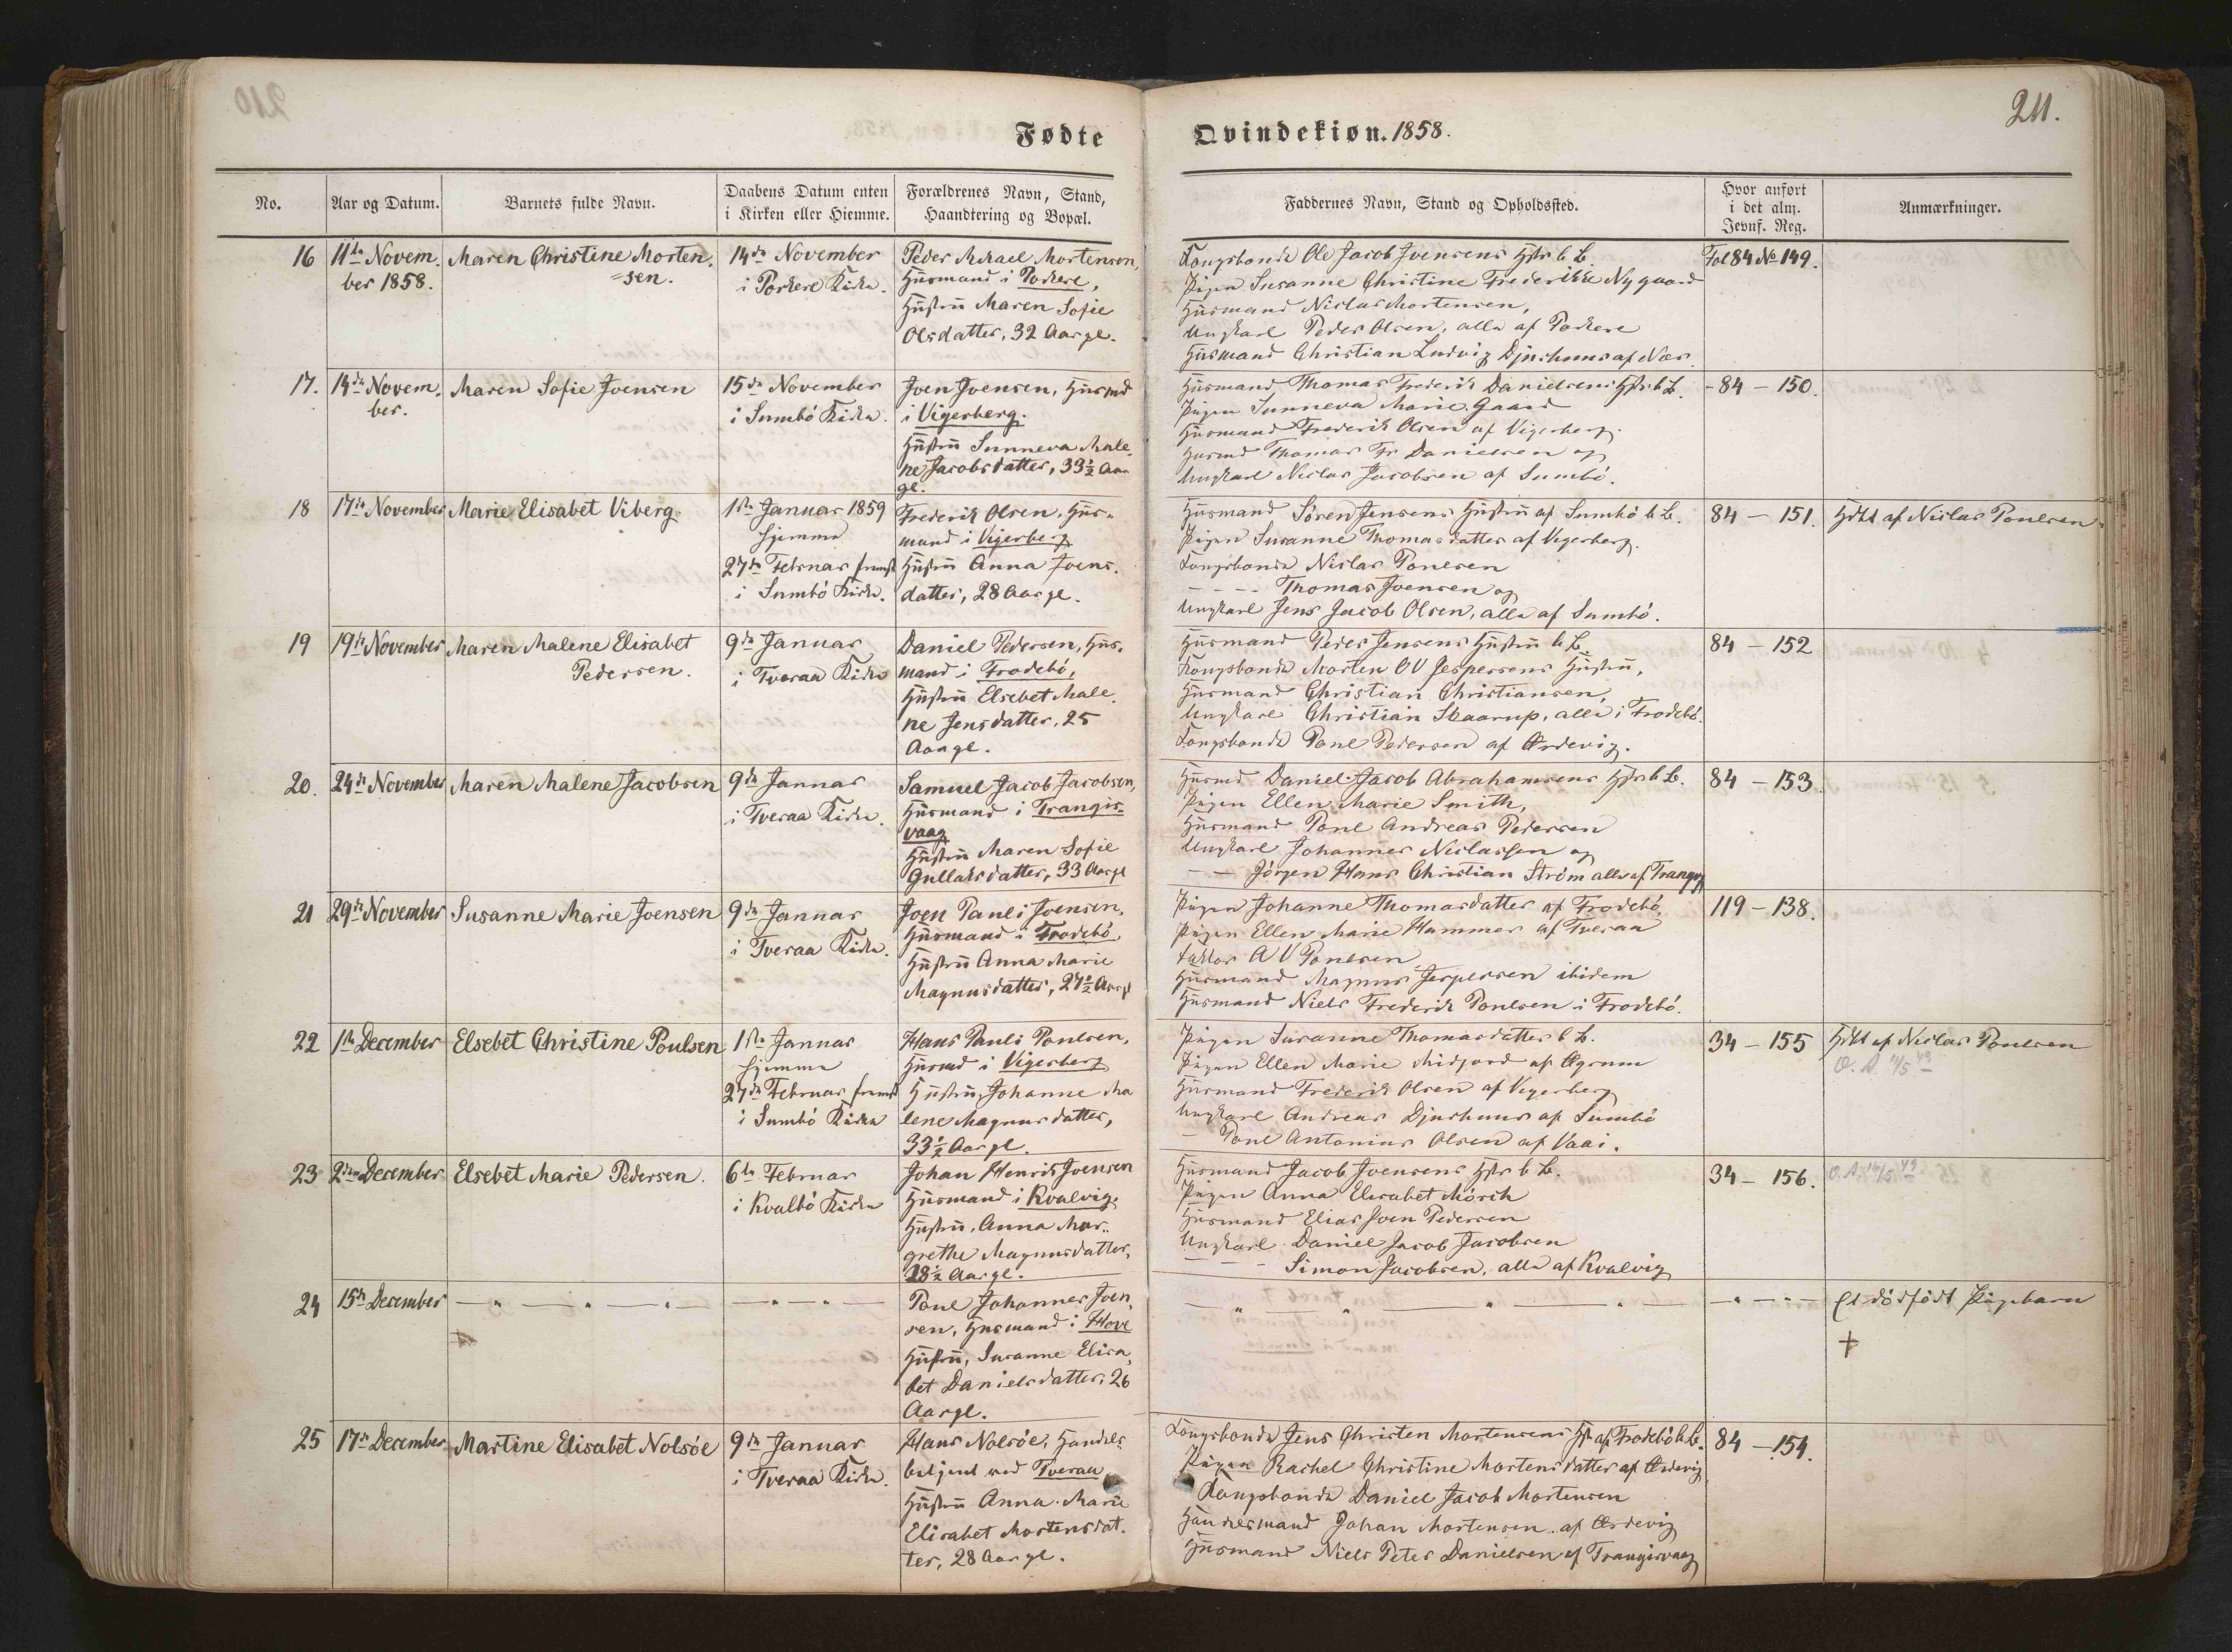 210
211.
Fødte
Qvindekiøn. 1858.
No.
Aar og Datum.
Barnets fulde Navn.
Daabens Datum enten
i Kirken eller Hiemme.
Forældrenes Navn, Stand,
Haandtering og Bopæl.
Faddernes Navn, Stand og Opholdssted.
Hvor anført
i det alm.
Jevnf. Reg.
Anmærkninger.
16
11te Novem-
ber 1858.
Maren Christine Morten-
sen.
14de November
i Porkere Kirke.
Peder Mikael Mortensen,
Huusmand i Porkere,
Hustru Maren Sofie
Olsdatter, 32 Aar gl.
Kongsbonde Ole Jacob Joensens Hstr b. B.
Pigen Susanne Christine Frederikke Nygaard
Huusmand Niclas Mortensen,
Ungkarl Peder Olsen, alle af Porkere
Huusmand Christian Ludvig Djurhuus af Næs.
Fol 84 No 149.
17.
14de Novem-
ber.
Maren Sofie Joensen
15de November
i Sumbö Kirke.
Joen Joensen, Huusmd
i Vigerberg.
Hustru Sunneva Male-
ne Jacobsdatter, 33½ Aar
gl.
Huusmand Thomas Frederik Danielsens Hstr b. B.
Pigen Sunneva Marie Gaard
Huusmand Frederik Olsen af Vigerberg.
Huusmd Thomas Fr Danielsen og
Ungkarl Niclas Jacobsen af Sumbö.
- 84 - 150.
18
17de November
Marie Elisabet Viberg.
1ste Januar 1859
hjemme
27de Februar fremst
i Sumbö Kirke.
Frederik Olsen, Huus-
mand i Vigerberg
Hustru Anna Joens-
datter, 28 Aar gl.
Huusmand Sören Jensens Hustru af Sumbö b. B.
Pigen Susanne Thomasdatter af Vigerberg.
Kongsbonde Niclas Poulsen
- - - - Thomas Joensen og
Ungkarl Jens Jacob Olsen, alle af Sumbö.
84 - 151.
Hdbt af Niclas Poulsen
19
19de November
Maren Malene Elisabet
Pedersen.
9de Januar
i Tveraa Kirke
Daniel Pedersen, Huus-
mand i Frodebö,
Hustru Elsebet Male-
ne Jensdatter, 25
Aar gl.
Huusmand Peder Jensens Hustru b. B.
Kongsbonde Morten OV Jespersens Hustru,
Huusmand Christian Christiansen,
Ungkarl Christian Skaarup, alle i Frodebö.
Kongsbonde Poul Pedersen af Ørdevig.
84 - 152
20.
24de November
Maren Malene Jacobsen
9de Januar
i Tveraa Kirke.
Samuel Jacob Jacobsen,
Huusmand i Trangis-
vaag
Hustru Maren Sofie
Gullaksdatter, 33 Aar gl
Huusmd Daniel Jacob Abrahamsens Hstr b. B.
Pigen Ellen Marie Smith,
Huusmand Poul Andreas Pedersen
Ungkarl Johannes Niclassen og
- - Jörgen Hans Christian Ström alle af Trangv
84 - 153
21
29de November
Susanne Marie Joensen
9de Januar
i Tveraa Kirke.
Joen Pauli Joensen,
Huusmand i Frodebö
Hustru Anna Marie
Magnusdatter, 27½ Aar gl
Pigen Johanne Thomasdatter af Frodebö,
Pigen Ellen Marie Hammer af Tveraa
Faktor A V Poulsen
Huusmand Magnus Jespersen ibidem
Huusmand Niels Frederik Poulsen i Frodebö.
119 - 138.
22
1ste December
Elsebet Christine Poulsen
1ste Januar
hjemme
27de Februar fremst
i Sumbö Kirke
Hans Pauli Poulsen,
Huusmd i Vigerberg
Hustru, Johanne Ma
lene Magnusdatter,
33½ Aar gl.
Pigen Susanne Thomasdatter b. B.
Pigen Ellen Marie Midjord af Øgrum
Huusmand Frederik Olsen af Vigerberg
Ungkarl Andreas Djurhuus af Sumbö
- Poul Antonius Olsen af Vaai.
34 - 155
Hdbt af Niclas Poulsen
23
2den December
Elsebet Marie Pedersen.
6te Februar
i Kvalbö Kirke
Johan Henrik Joensen
Huusmand i Kvalvig,
Hustru, Anna Mar-
grethe Magnusdatter,
28½ Aar gl.
Huusmand Jacob Joensens Hstr b. B.
Pigen Anna Elisabet Mörch
Huusmand Elias Joen Pedersen
Ungkarl Daniel Jacob Jacobsen
- - - Simon Jacobsen, alle af Kvalvig
34 - 156.
24
15de December
Poul Johannes Joen-
sen, Huusmand i Hove
Hustru, Susanne Elisa-
bet Danielsdatter, 26
Aar gl.
Et dödfödt Pigebarn
+
25
17de December
Martine Elisabet Nolsöe
9de Januar
i Tveraa Kirke.
Hans Nolsöe, Handels-
betjent ved Tveraa
Hustru Anna Marie
Elisabet Mortensdat-
ter, 28 Aar gl.
Kongsbonde Jens Christen Mortensens Hst af Frodebö b. B.
Pigen Rachel Christine Mortensdatter af Ørdevig
Kongsbonde Daniel Jacob Mortensen
Huusmand Johan Mortensen af Ørdevig
Huusmand Niels Peter Danielsen af Trangisvaag
84 - 154.